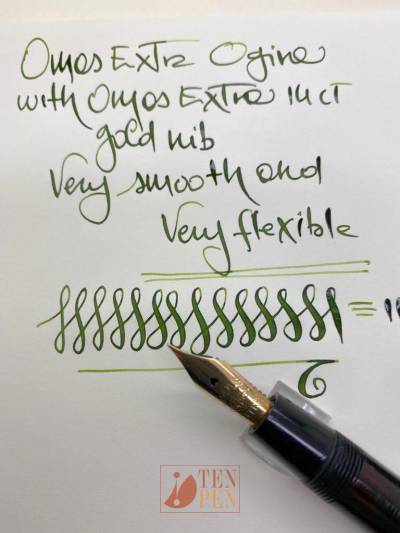 Omas Extra Ogina
with Omas Extra 14 ct
gold nib
Very smooth and
Very flexible
TEN
PEN